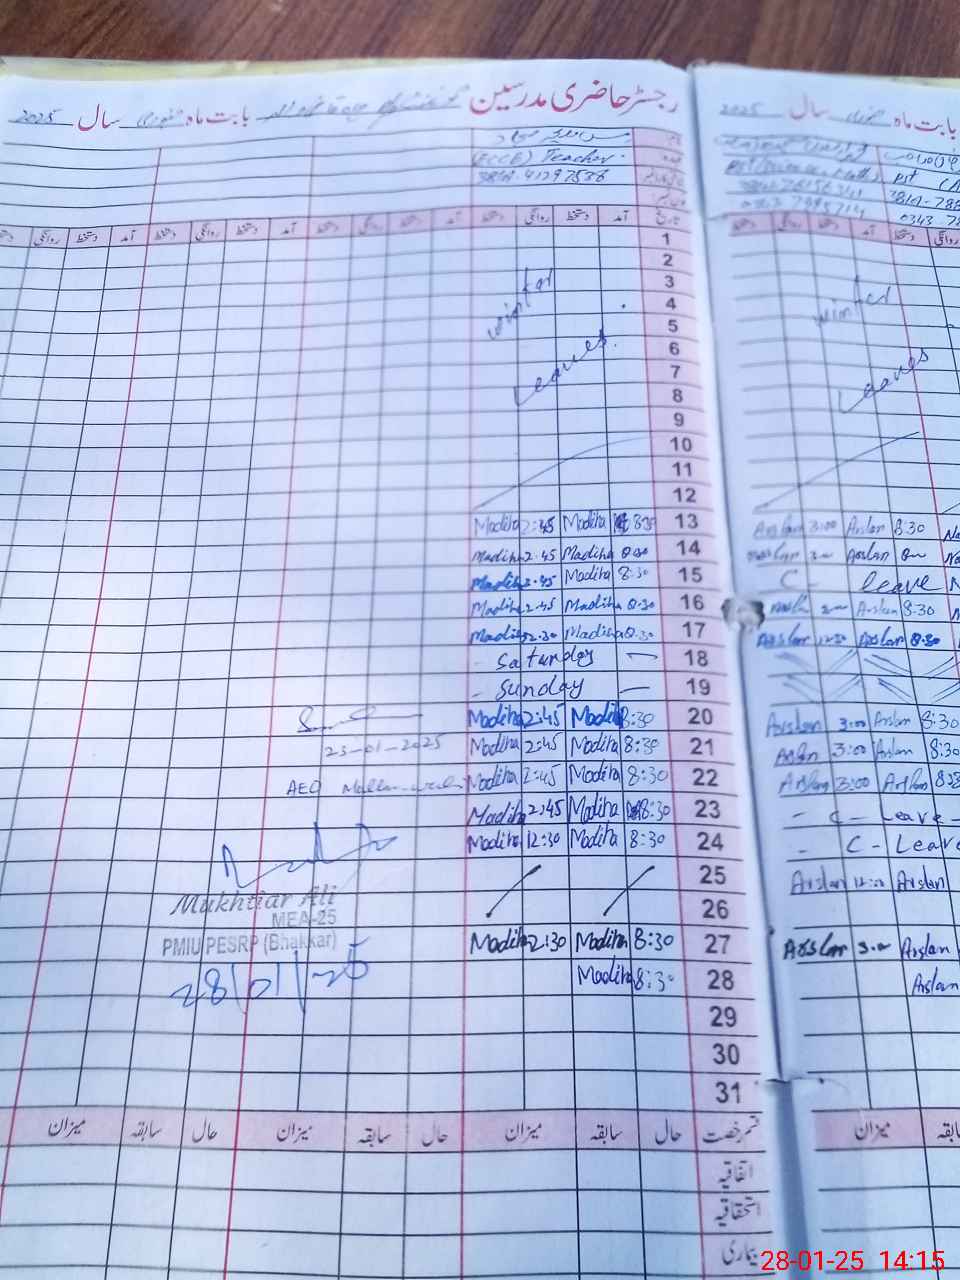 رجسٹر حاضری مدرسین
بابت ماہ جنوری سال 2025
(ECCE) Teacher.
آمد دستخط روانگی دستخط آمد دستخط روانگی دستخط آمد دستخط روانگی دستخط
تاریخ
1
2
3
4
5
6
7
8
9
10
11
12
winter
Leaves.
13 8:30 Madiha 2:45 Madiha
14 8:30 Madiha 2:45 Madiha
15 8:30 Madiha 2:45 Madiha
16 8:30 Madiha 2:45 Madiha
17 8:30 Madiha 12:30 Madiha
18 - Saturday -
19 - Sunday -
20 8:30 Madiha 2:45 Madiha
21 8:30 Madiha 2:45 Madiha
22 8:30 Madiha 2:45 Madiha
23 8:30 Madiha 2:45 Madiha
24 8:30 Madiha 12:30 Madiha
25
26
27 8:30 Madiha 2:30 Madiha
28 8:30 Madiha
29
30
31
23-01-2025
AEO
Mukhtiar Ali
MEA-25
PMIU PESRP (Bhakkar)
28/01/25
قسم رخصت حال سابقہ میزان حال سابقہ میزان حال سابقہ میزان
اتفاقیہ
استحقاقیہ
بیماری
بابت ماہ جنوری سال 2025
PST
آمد دستخط روانگی دستخط
winter
Leaves
8:30 Arslan 3:00 Arslan
Arslan 3:00
C- leave
8:30 Arslan
8:30 Arslan 12:30 Arslan
8:30 Arslan 3:00 Arslan
8:30 Arslan 3:00 Arslan
Arslan 3:00 Arslan
- C- Leave -
- C- Leave
Arslan 12:00 Arslan
Arslan 3:00 Arslan
Arslan
میزان سابقہ
28-01-25 14:15